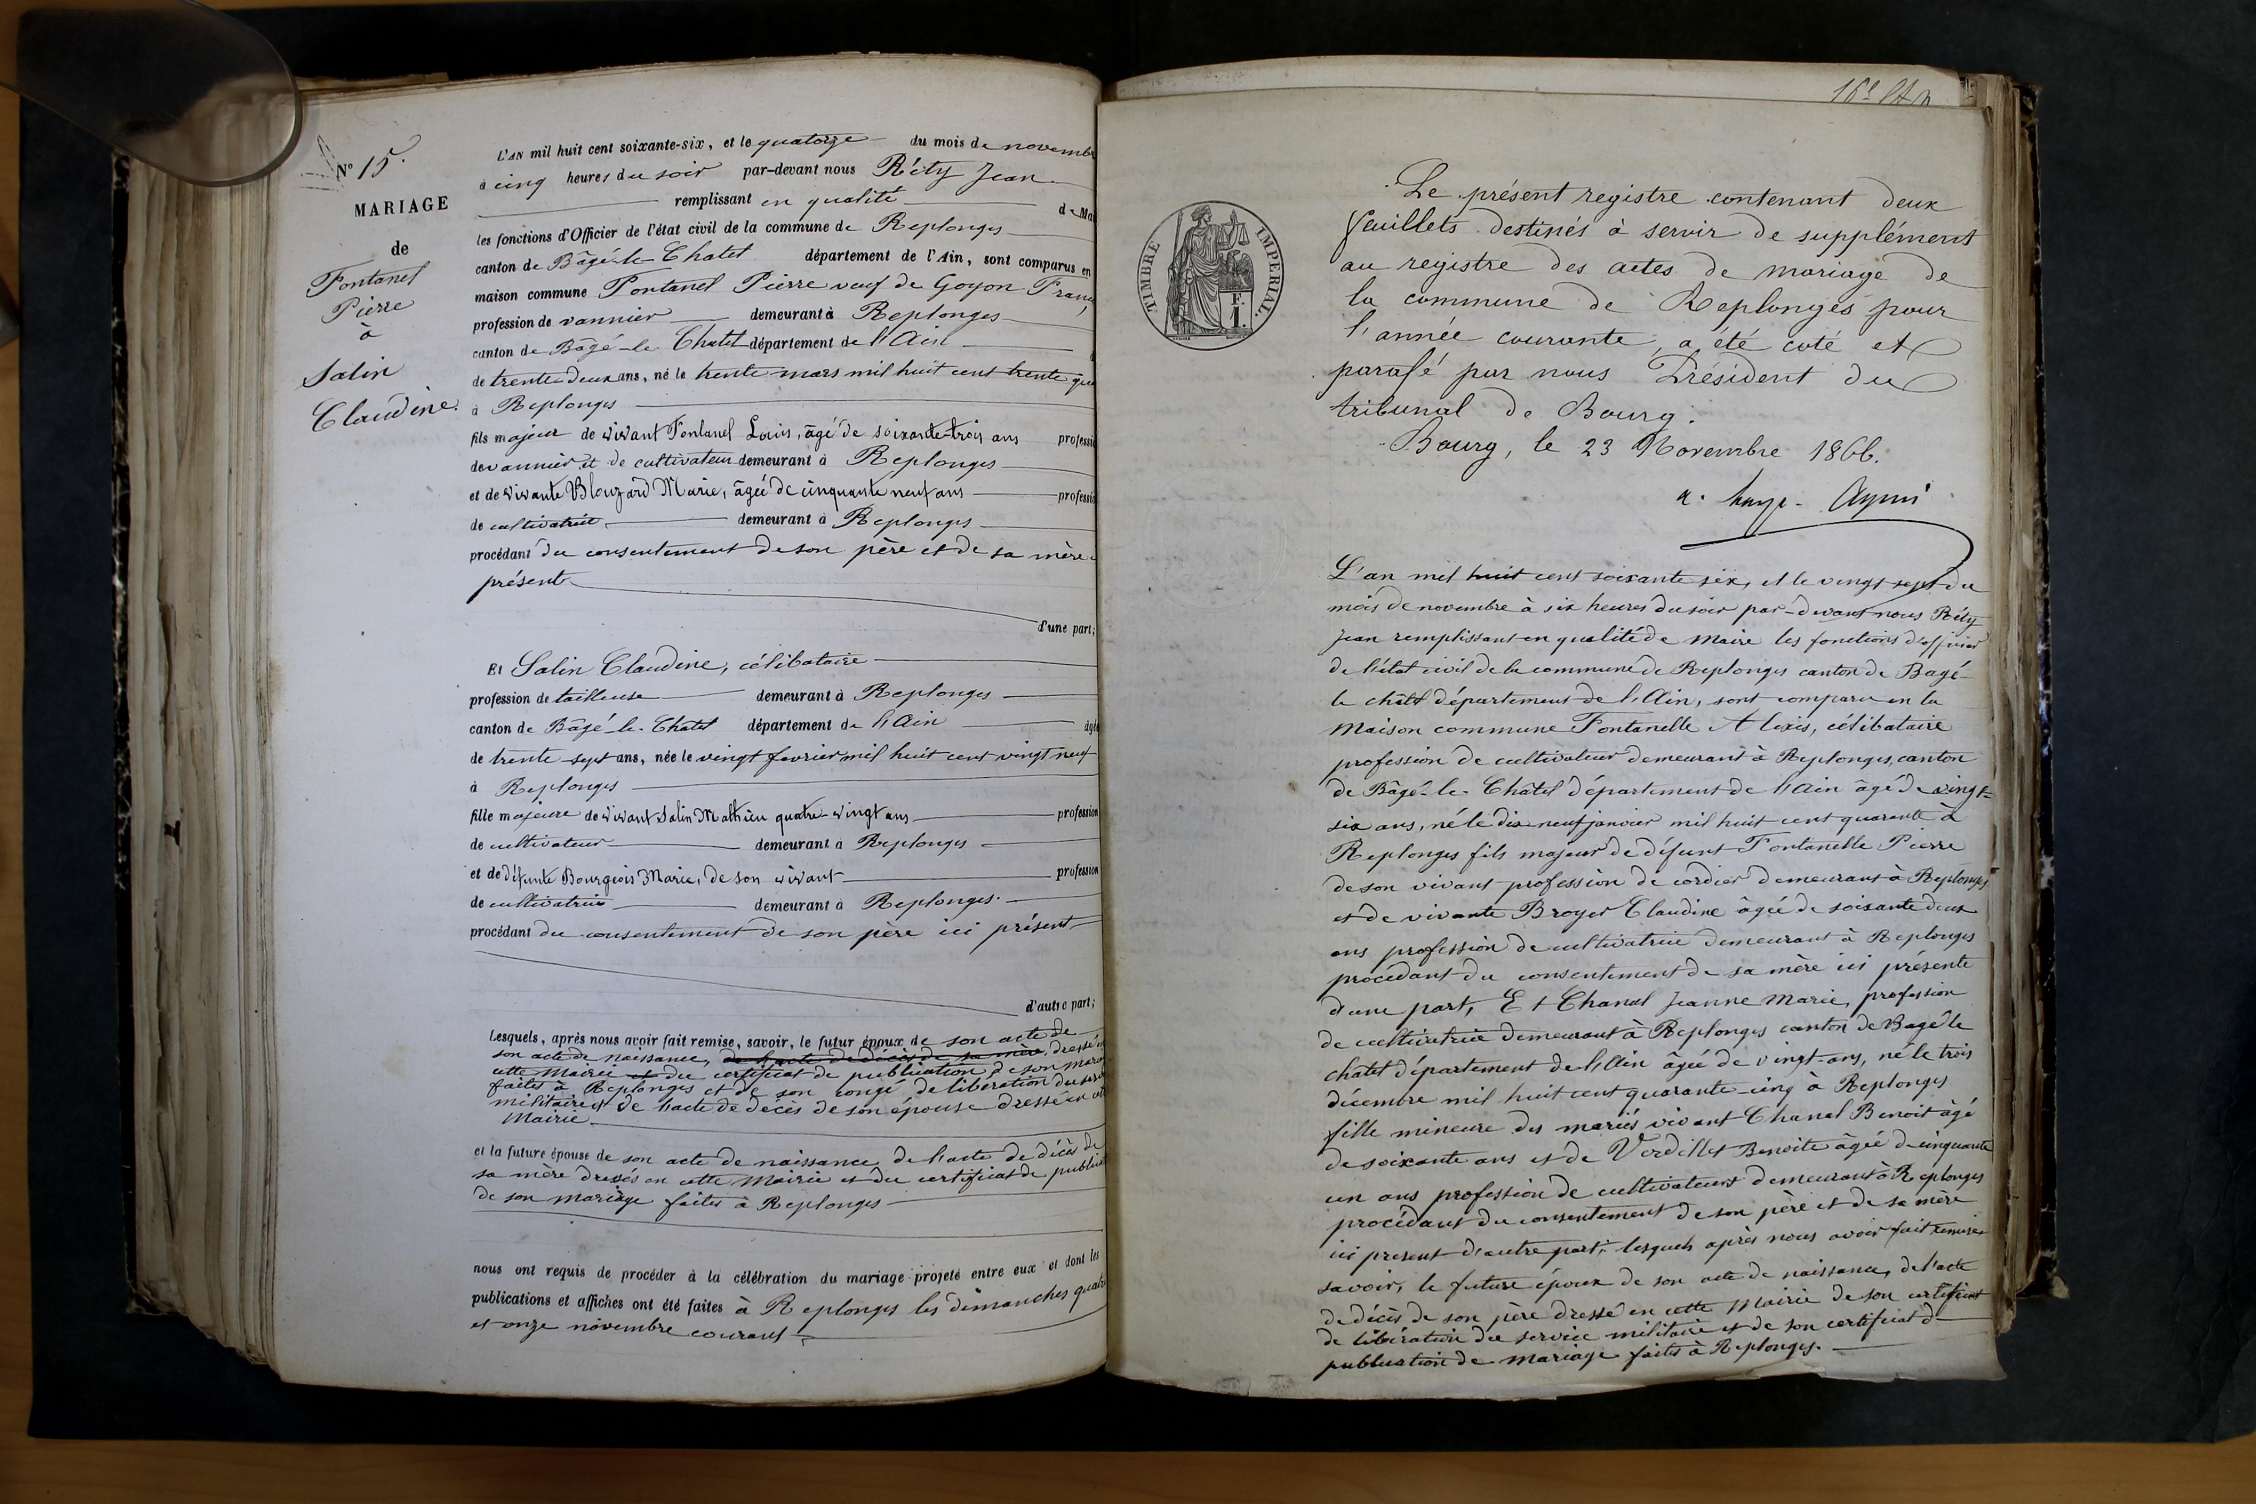 N° 15.
MARIAGE
de
Fontanel
Pierre
à
Salin
Claudine.
L'AN mil huit cent soixante-six, et le quatorze du mois de novembre
à cinq heures du soir par-devant nous Réty Jean
remplissant en qualité de Mai
les fonctions d'Officier de l'état civil de la commune de Replonges
canton de Bâgé-le-Chatel département de l'Ain, sont comparus en
maison commune Fontanel Pierre veuf de Goyon Franç
profession de vannier demeurant à Replonges
canton de Bâgé-le Chatel département de l'Ain
de trente deux ans, né le trente mars mil huit cent trente qua
à Replonges
fils majeur de vivant Fontanel Louis, âgé de soixante-trois ans professi
de vannier et de cultivateur demeurant à Replonges
et de vivante Blouzard Marie, âgée de cinquante neuf ans professi
de cultivatrice demeurant à Replonges
procédant du consentement de son père et de sa mère
présents
d'une part;
Et Salin Claudine, célibataire
profession de tailleuse demeurant à Replonges
canton de Bâgé-le-Chatel département de l'Ain âgée
de trente-sept ans, née le vingt fevrier mil huit cent vingt neuf
à Replonges
fille majeure de vivant Salin Mathieu quatre-vingt ans profession
de cultivateur demeurant à Replonges
et de défunte Bourgeois Marie, de son vivant profession
de cultivatrice demeurant à Replonges.
procédant du consentement de son père ici présent
d'autre part;
Lesquels, après nous avoir fait remise, savoir, le futur époux de son acte de
son acte de naissance, de l'acte de décès de sa mère, dressé en
cette Mairie et du certificat de publication de son maria
faites à Replonges et de son congé de libération du servi
militaire et de l'acte de décès de son épouse dressé en cette
Mairie
et la future épouse de son acte de naissance, de l'acte de décès de
sa mère dressés en cette Mairie et du certificat de publicat
de son mariage faites à Replonges
nous ont requis de procéder à la célébration du mariage projeté entre eux et dont les
publications et affiches ont été faites à Replonges les dimanches quatre
et onze novembre courant
TIMBRE IMPERIAL.
Le présent registre contenant deux
feuillets destinés à servir de supplément
au registre des actes de mariage de
la commune de Replonges pour
l'année courante, a été coté et
parafé par nous Président du
tribunal de Bourg.
Bourg, le 23 Novembre 1866.
L'an mil huit cent soixante six, et le vingt sept du
mois de novembre à six heures du soir par-devant nous Réty
Jean remplissant en qualité de Maire les fonctions d'officier
de l'état civil de la commune de Replonges canton de Bagé-
le châtel département de l'Ain, sont comparu en la
Maison commune Fontanelle Alexis, célibataire
profession de cultivateur demeurant à Replonges, canton
de Bâgé-le-Châtel département de l'Ain âgé de vingt-
six ans, né le dix neuf janvier mil huit cent quarante à
Replonges fils majeur de défunt Fontanelle Pierre
de son vivant profession de cordier demeurant à Replonges
et de vivante Broyer Claudine âgée de soixante deux
ans profession de cultivatrice demeurant à Replonges
procédant du consentement de sa mère ici présente
d'une part, Et Chanal Jeanne Marie, profession
de cultivatrice demeurant à Replonges canton de Bagé le
chatel département de l'Ain âgée de vingt-ans, né le trois
décembre mil huit cent quarante-cinq à Replonges
fille mineure des mariés vivant Chanal Benoit âgé
de soixante ans et de Verdillet Benoite âgée de cinquante
un ans profession de cultivateurs demeurant à Replonges
procédant du consentement de son père et de sa mère
ici present d'autre part; lesquels après nous avoir fait remise
savoir, le future époux de son acte de naissance, de l'acte
de décès de son père dressé en cette Mairie de son certificat
de libération du service militaire et de son certificat de
publication de mariage faites à Replonges.